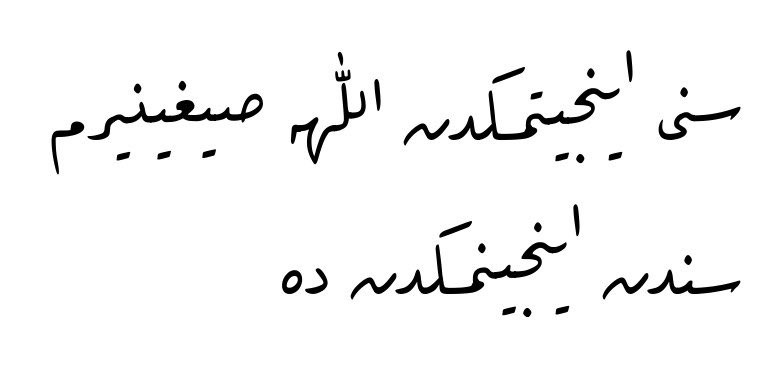 سنی اینجیتمكدن اللّٰهه صیغینیرم
سندن اینجینمكدن ده